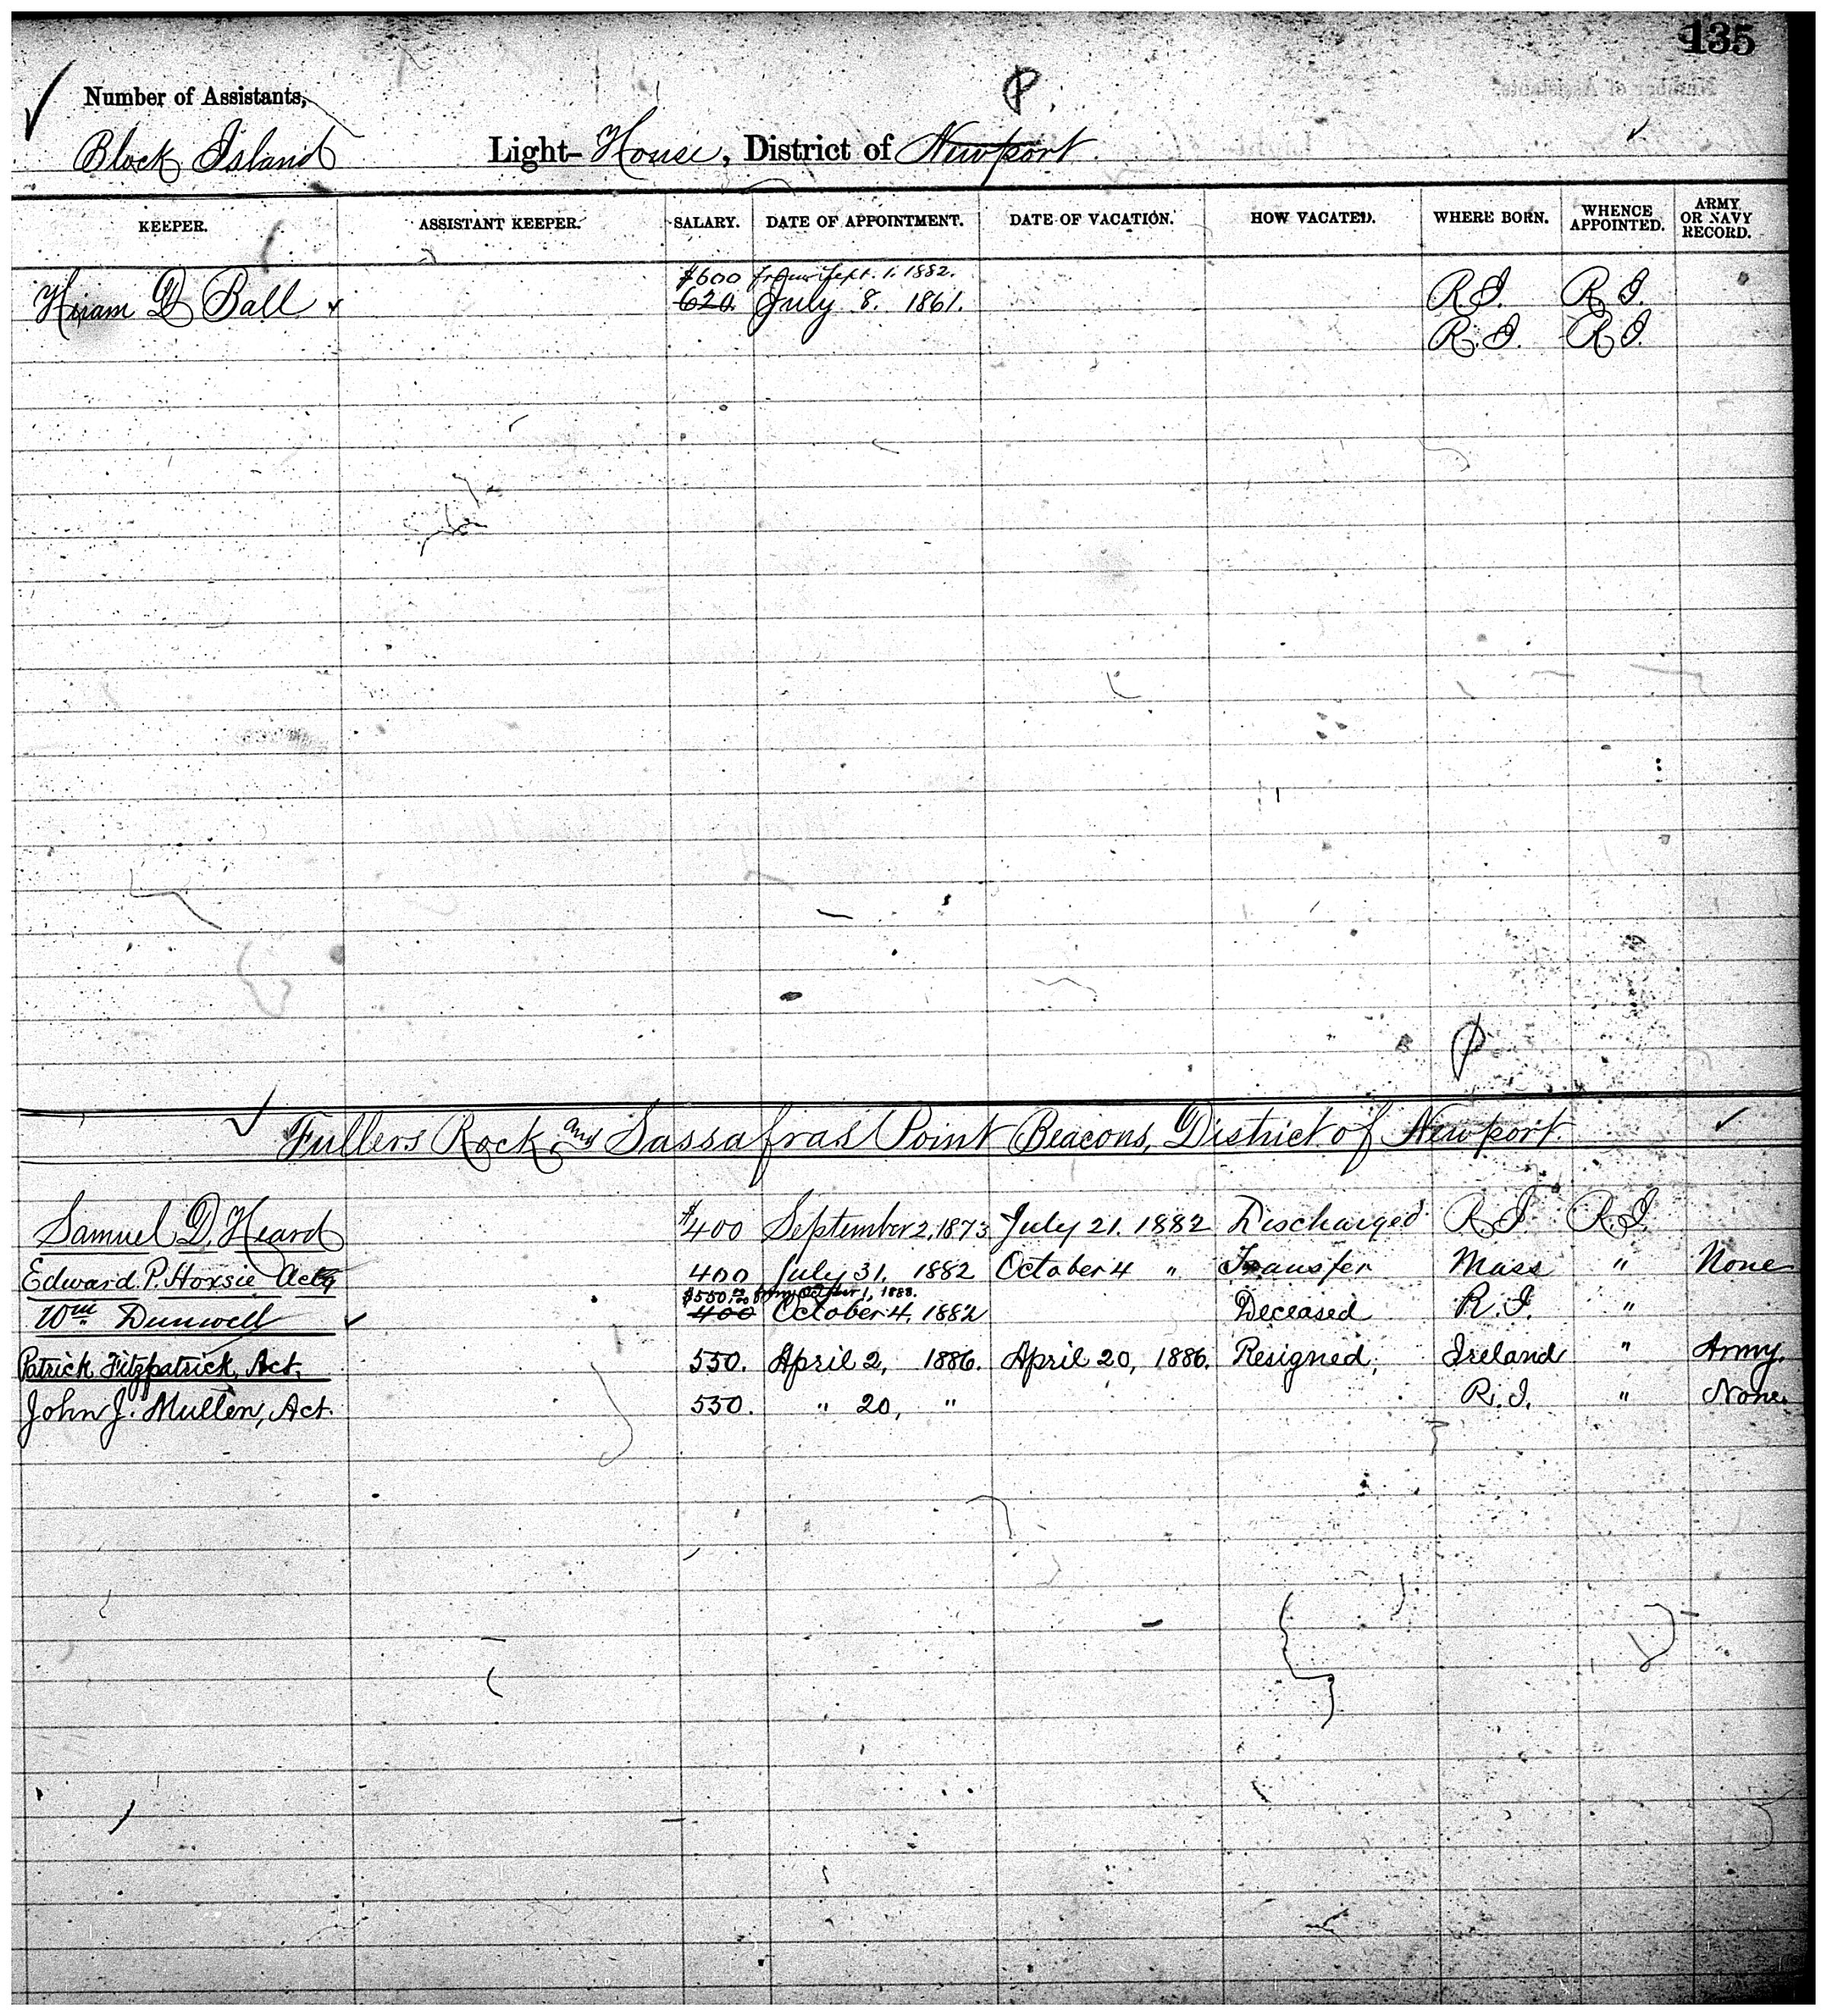 135
Number of Assistants,
Block Island Light-House, District of Newport.
KEEPER. ASSISTANT KEEPER. SALARY. DATE OF APPOINTMENT. DATE OF VACATION. HOW VACATED. WHERE BORN. WHENCE APPOINTED. ARMY OR NAVY RECORD.
$600 from Sept. 1. 1882.
Hiram D Ball 620. July 8. 1861. R.I. R.I.
R.I. R.I.
Fullers Rock and Sassafras Point Beacons, District of Newport.
Samuel D. Heard $400 September 2, 1873 July 21. 1882 Discharged R.I. R.I.
Edward P. Hoxsie Actg 400 July 31. 1882 October 4 " Transfer Mass " None
$550 from October 1, 1883.
Wm Dunwell 400 October 4, 1882 Deceased R.I. "
Patrick Fitzpatrick, Act. 550. April 2, 1886. April 20, 1886. Resigned. Ireland " Army.
John J. Mullen, Act. 550. " 20, " R.I. " None.